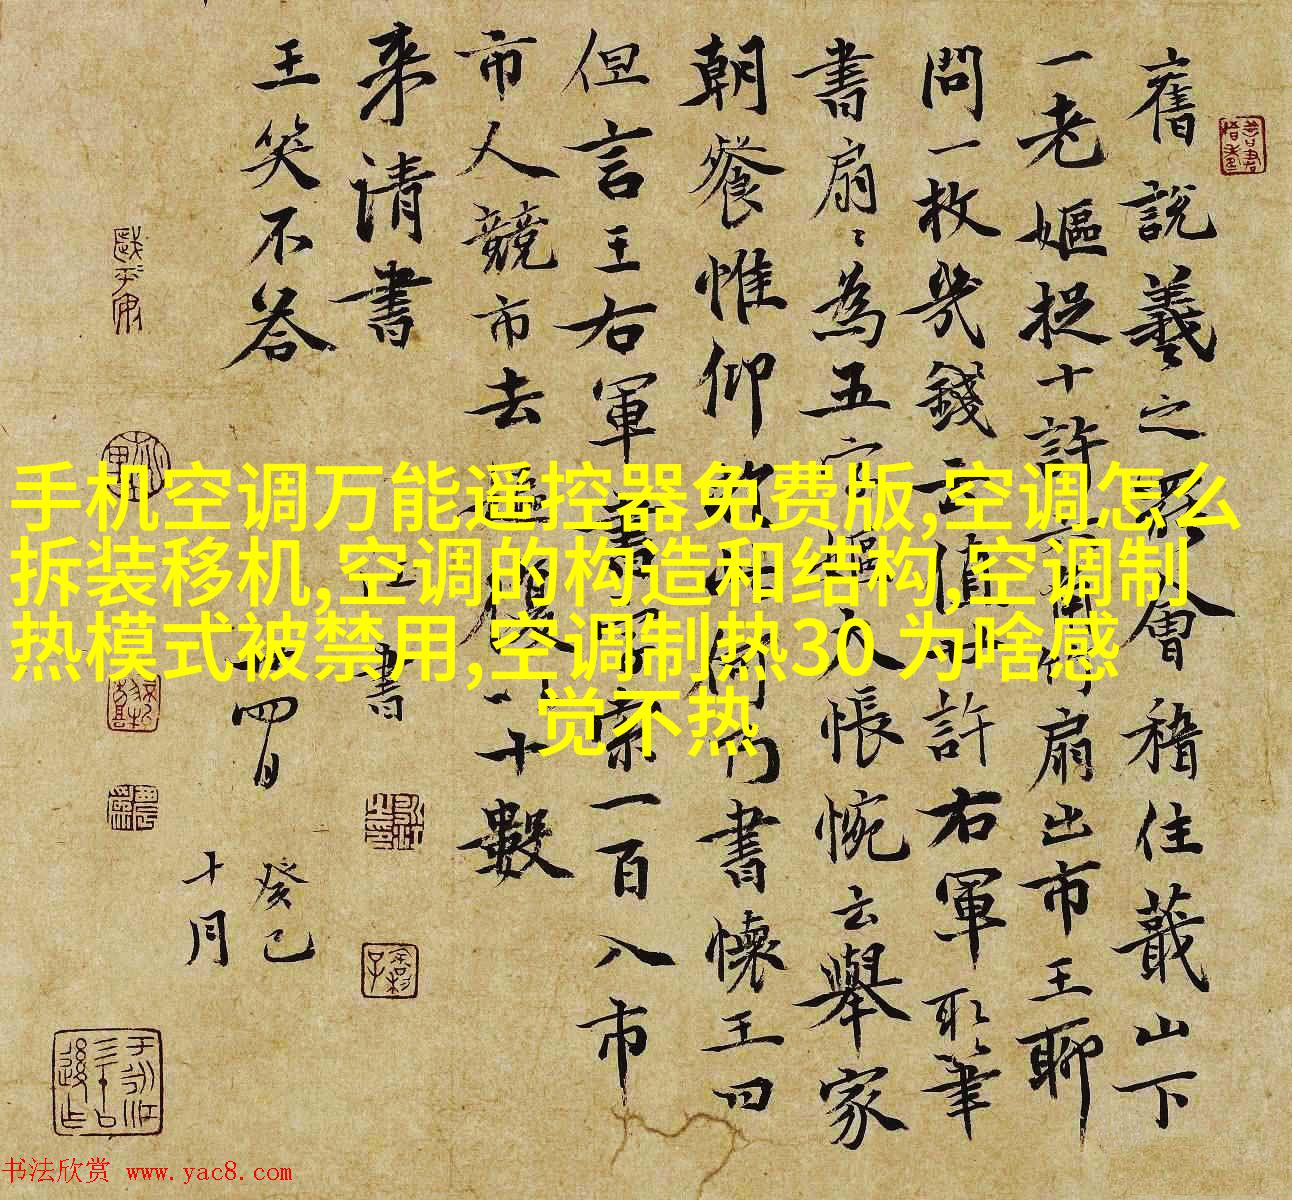 手机空调万能遥控器免费版,空调怎么
拆装移机,空调的构造和结构,空调制
热模式被禁用,空调制热30 为啥感
觉不热
舊說羲之罷會稽住蕺山下
一老嫗捉十許六角竹扇出市王聊
問一枚幾錢云值廿許右軍取筆
書扇〻為五字嫗大悵惋云舉家
朝餐惟仰何書懷王曰
但言王右軍書字索一百入市
市人競市去復十數
來請書
王笑不答
書
癸巳
十月
四日
书法欣赏 www.yac8.com